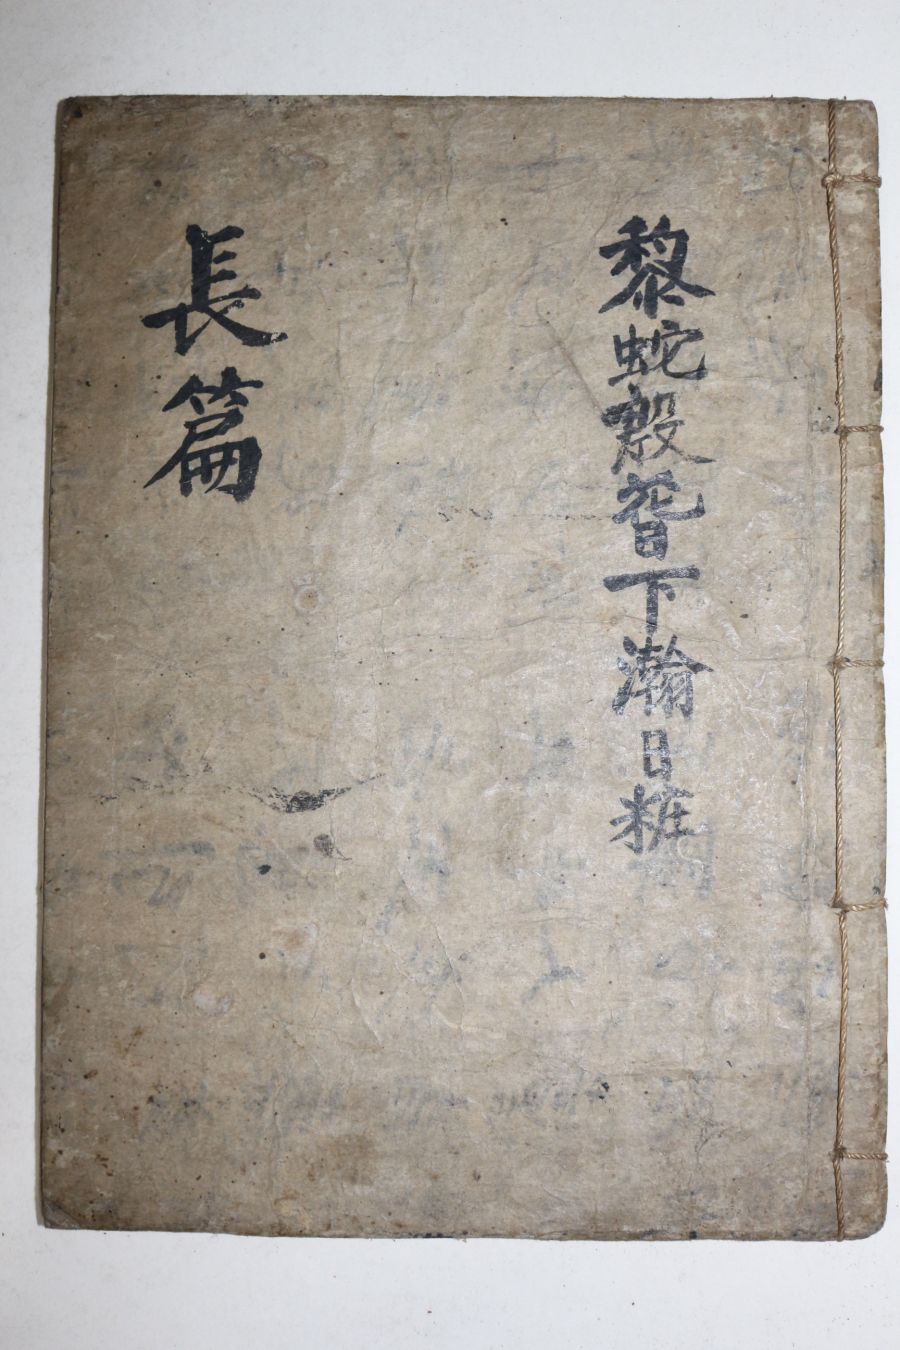 黎蛇殷萅下瀚日粧
長篇